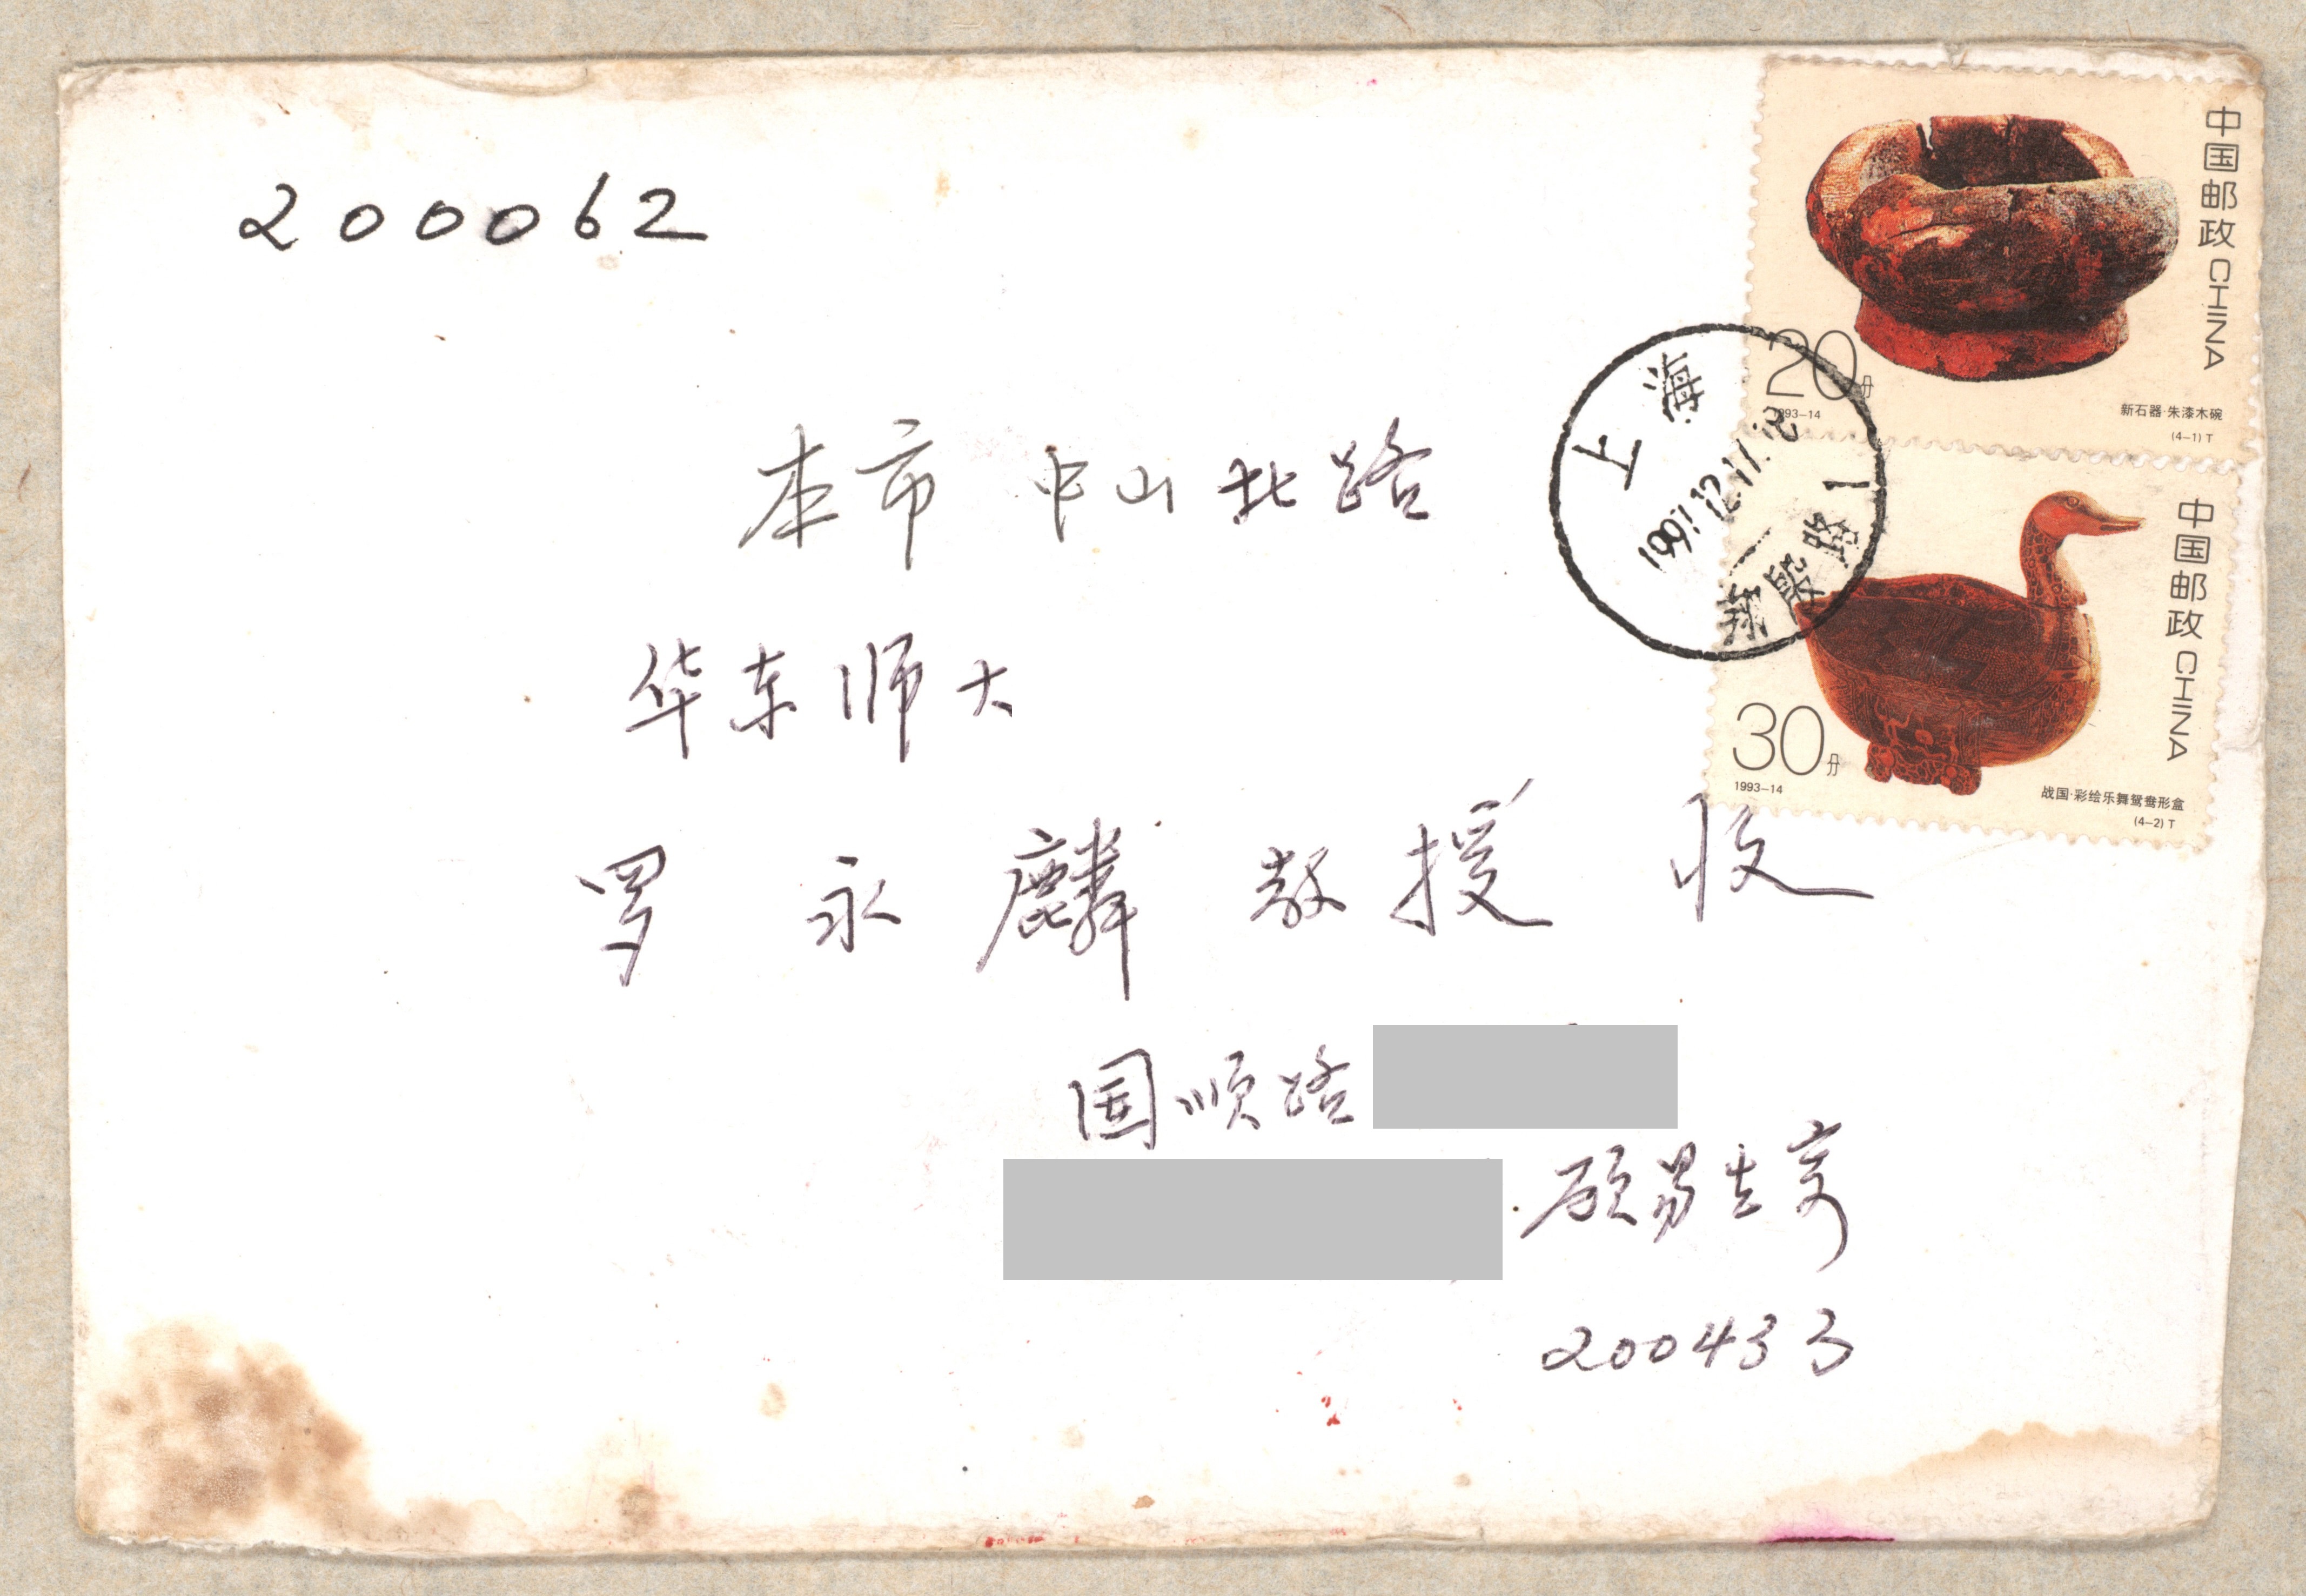 200062
中国邮政 CHINA
20分
1993-14
新石器·朱漆木碗
(4-1) T
上海
1997.12.17.18
路1
中国邮政 CHINA
30分
1993-14
战国·彩绘乐舞鸳鸯形盒
(4-2) T
本市 中山北路
华东师大
罗永麟教授 收
国顺路
顾易生寄
200433